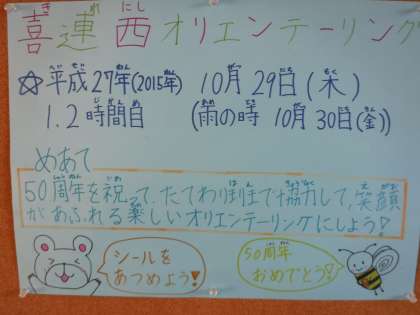 喜連西オリエンテーリング
☆平成27年(2015年) 10月29日(木)
1.2時間目 (雨の時 10月30日(金))
めあて
50周年を祝って、たてわり班で協力して、笑顔
があふれる楽しいオリエンテーリングにしよう!
シールを
あつめよう!
50周年
おめでとう!!